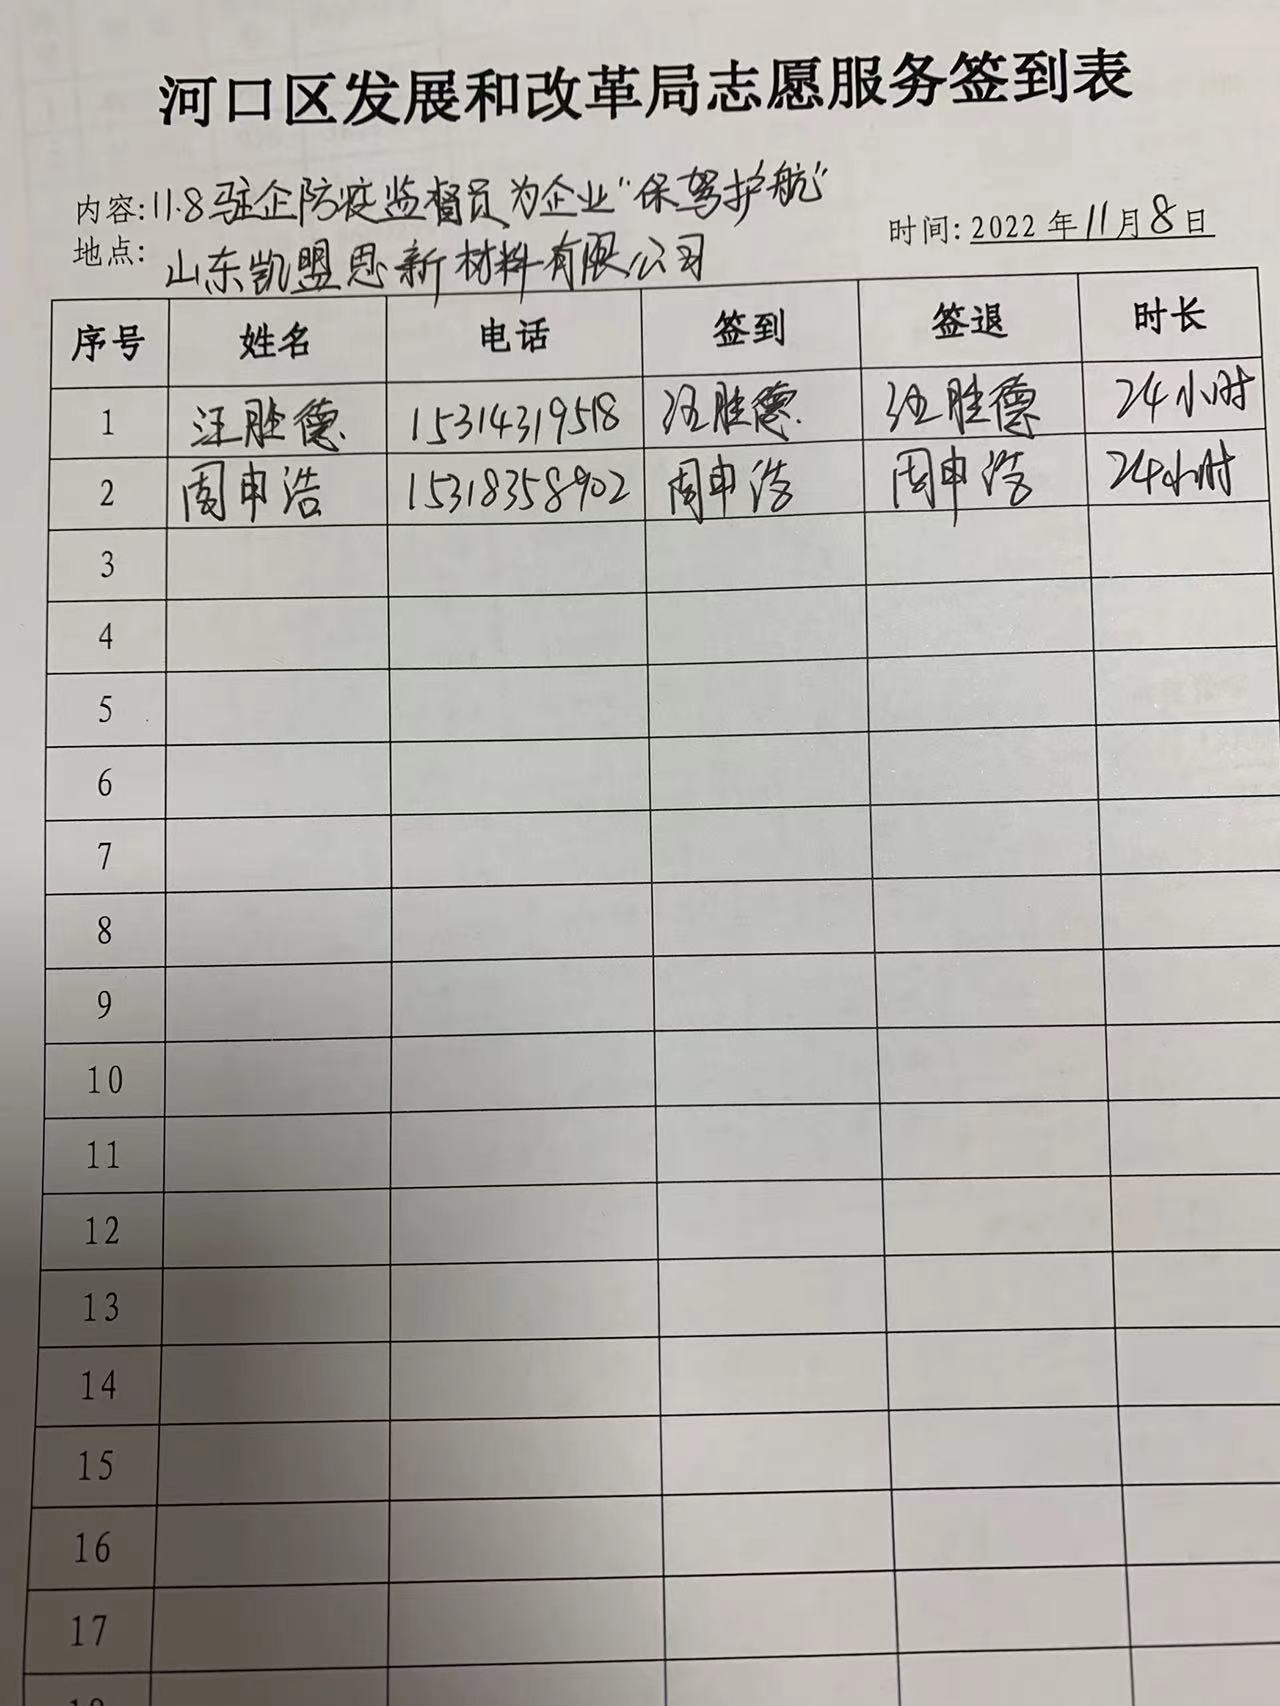 河口区发展和改革局志愿服务签到表
内容:11.8驻企防疫监督员为企业“保驾护航”
时间:2022年11月8日
地点:山东凯盟思新材料有限公司
序号 姓名 电话 签到 签退 时长
1 汪胜德 15314319518 汪胜德 汪胜德 24小时
2 周申浩 15318358902 周申浩 周申浩 24小时
3
4
5
6
7
8
9
10
11
12
13
14
15
16
17
18